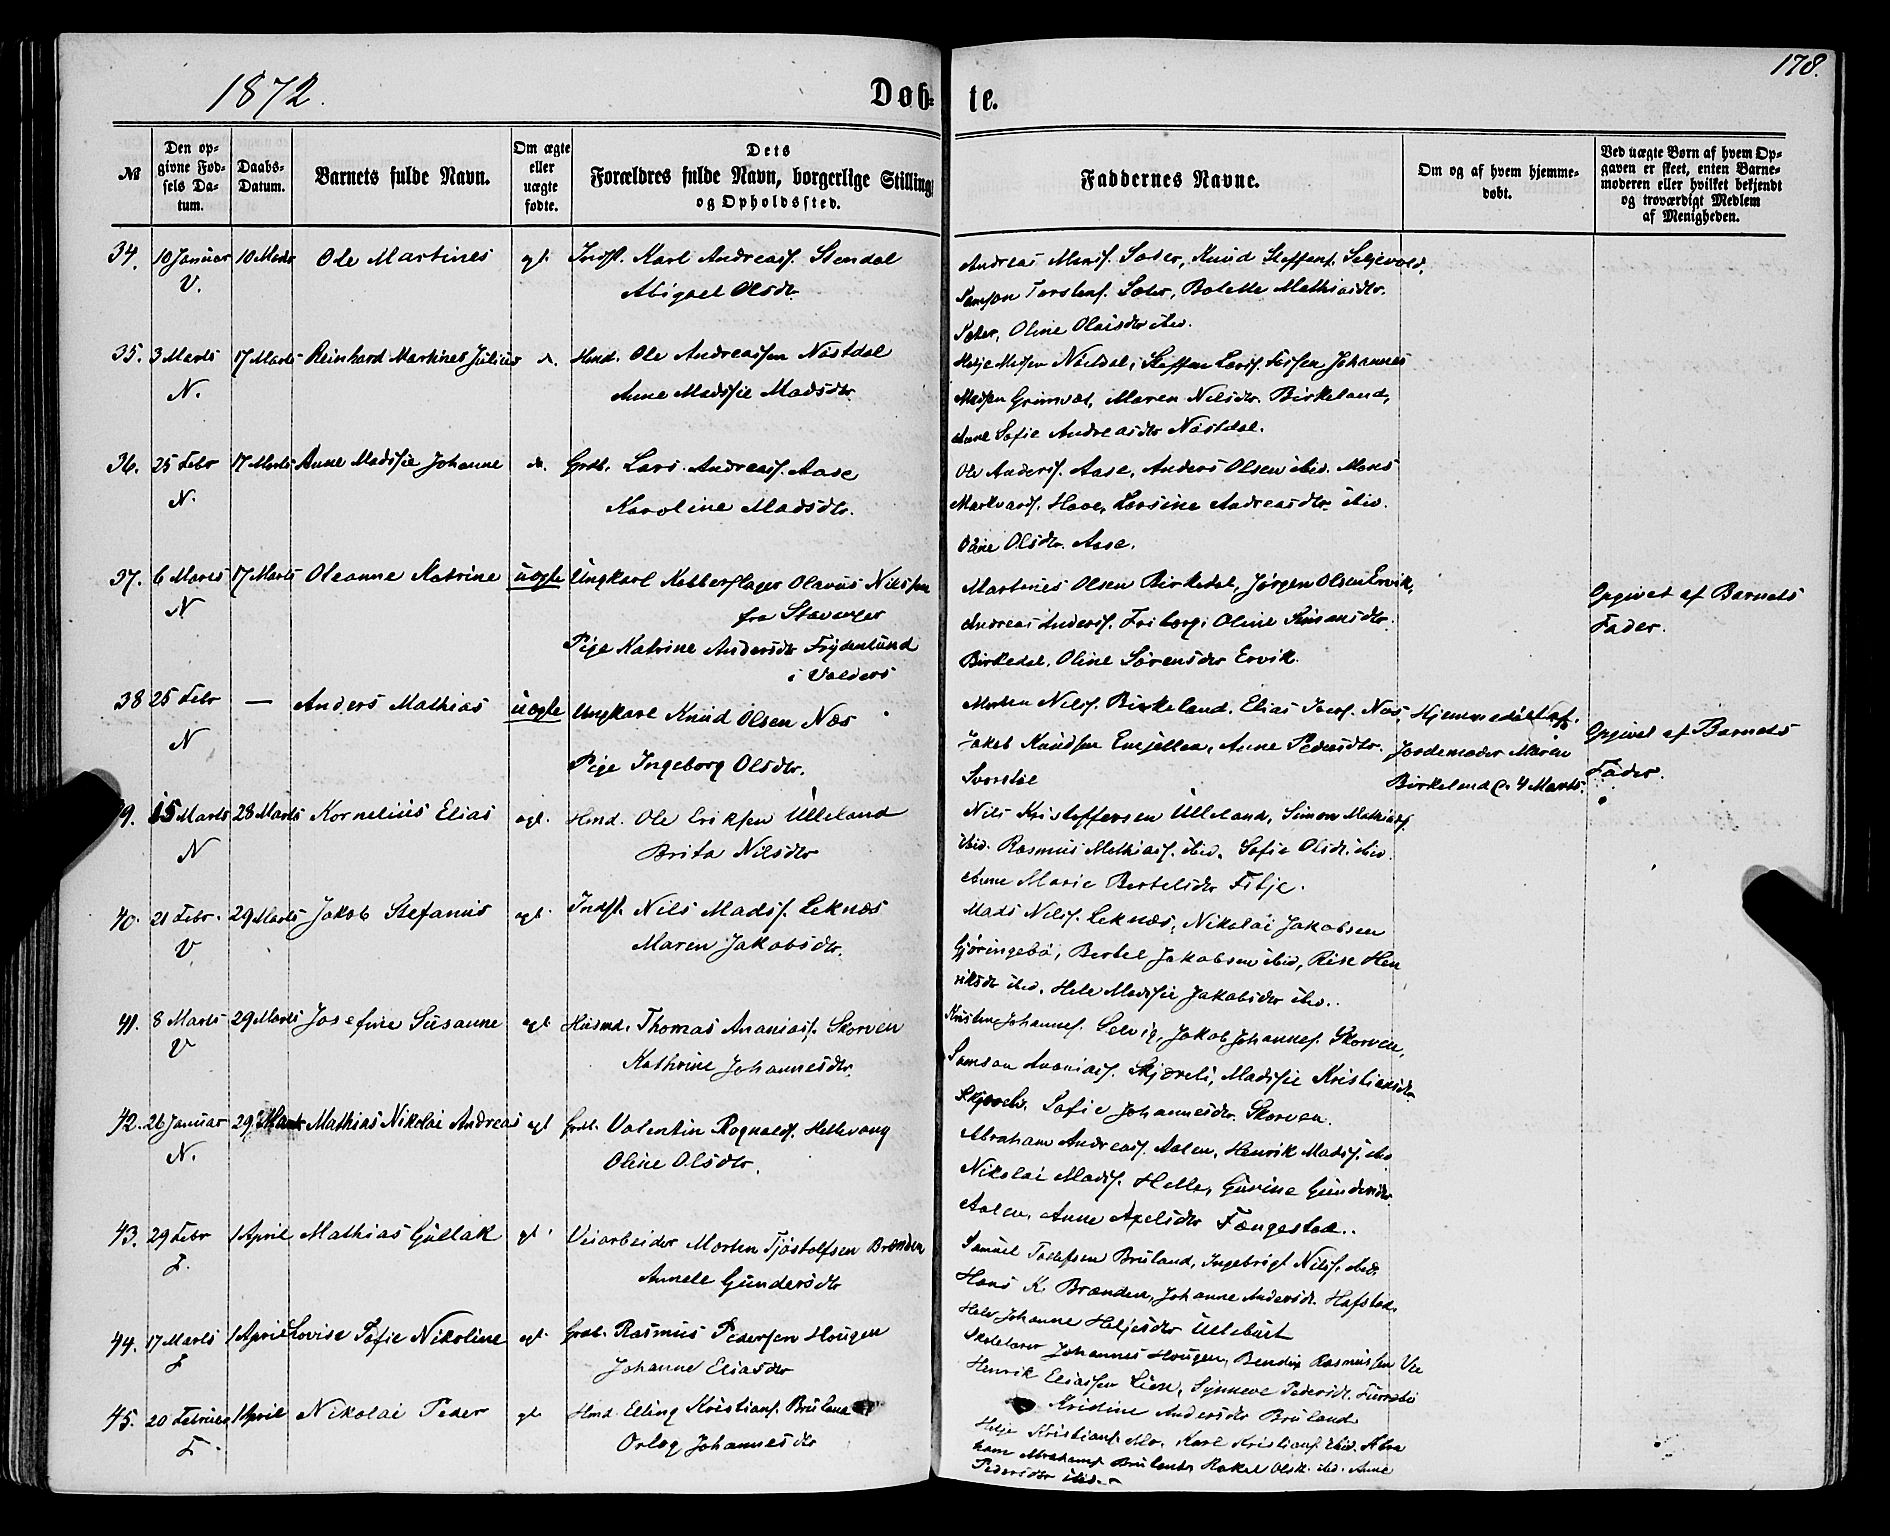 178.
1872.
Døb- te.
№
Den op-
givne Fød-
sels Da-
tum.
Daabs-
Datum.
Barnets fulde Navn.
Om ægte
eller
uægte
fødte.
Dets
Forældres fulde Navn, borgerlige Stilling
og Opholdssted.
Faddernes Navne.
Om og af hvem hjemme-
døbt.
Ved uægte Børn af hvem Op-
gaven er skeet, enten Barne-
moderen eller hvilket bekjendt
og troværdigt Medlem
af Menigheden.
34. 10 Januar 10 Marts Ole Martines egt. Indst. Karl Andreasf. Stendal
V. Abigael Olsdr.
Andreas Monsf. Sæter, Knud Steffenf.
Samson Torstenf. Sæter, Bolette Mathiasdtr.
Sæter, Oline Olaisdtr ibid.
35. 3 Marts 17 Marts Reinhard Martines Julius do. Hmd. Ole Andreassen Nøstdal
N. Anne Madssie Madsdtr
Helje Madsen Nøstdal, Steffen Larsf. Johannes
Madsen Grimset, Maren Nilsdtr. Birkeland,
Anne Sofie Andreasdtr Nøstdal.
36. 25 Febr 17 Marts Anne Madssie Johanne do. Grdb. Lars Andreasf. Aase
N. Karoline Madsdtr.
Ole Andersf. Aase, Anders Olsen ibid. Mons
Markvardf. Hove, Larsine Andreasdtr. ibid.
Olsdtr. Aase.
37. 6 Marts 17 Marts Oleanne Katrine uegte Ungkarl Kobberslager Olavus Nilssen
N fra Stavanger
Pige Katrine Andersdtr Frydenlund
i Valders
Martines Olsen Birkedal, Jørgen Olsen Ervik,
Andreas Andersf. Friborg, Oline Simonsdtr.
Birkedal, Oline Sørensdtr Ervik.
Opgivet af Barnets
Fader.
38 25 Febr — Anders Mathias uegte Ungkarl Knud Olsen Næs
N Pige Ingeborg Olsdtr.
Morten Nilsf. Birkeland, Elias Næs,
Jakob Knudsen Anne Pedersdtr.
Hjemmedøbt af
Jordemoder Maren
Birkeland d. 4 Marts.
Opgivet af Barnets
Fader.
39. 15 Marts 28 Marts Kornelius Elias egt. Hmd. Ole Eriksen Ulleland
N Brita Nilsdtr
Nils Kristoffersen Ulleland, Simon Mathiasf.
ibid. Rasmus Mathiasf. ibid. Sofie Olsdtr. ibid.
Anne Marie Bertelsdtr Fitje.
40. 21 Febr. 29 Marts Jakob Stefanus egt. Indst. Nils Madsf. Leknæs
V Maren Jakobsdtr.
Mads Nilsf. Leknæs, Nikolai Jakobsen
Gjøringebø, Bertel Jakobsen ibid, Rise Hen
riksdtr ibid. Hele Madssie Jakobsdtr ibid.
41. 8 Marts 29 Marts Josefine Susanne egt Husmd. Thomas Ananiasf. Skorven
V Kathrine Johannesdtr.
Johannesf. Selvig, Jakob Johannesf. Skorven,
Samson Ananiasf. Skjæreli, Madssie Kristiansdtr
Skjæreli, Sofie Johannesdtr. Skorven.
42. 26 Januar 29 Marts Mathias Nikolai Andreas egt Grdb. Valentin Rognaldf. Hellevang
N. Oline Olsdtr.
Abraham Andreasf. Aalen, Henrik Madsf. ibid
Nikolai Madsf. Helle, Gurine Gundersdtr
Aalen, Anne Axelsdtr Fængestad.
43. 29 Febr 1 April Mathias Gullak egt Veiarbeider Morten Tjøstolfsen Brænden
F. Annele Gundersdtr
Samuel Bruland, Ingebrigt Nilsf. ibid,
Hans K. Brænden, Johanne Andersdtr. Hafstad.
Johanne Heljesdtr
44. 17 Marts 1 April Lovise Sofie Nikoline egt. Grdb. Rasmus Pedersen Hougen
F Johanne Eliasdtr
Skolelærer Johannes Hougen, Bendix Rasmussen Vie
Henrik Eliassen Lien, Synneve Pedersdtr.
Kristine Andersdtr Bruland
45. 20 Februar 1 April Nikolai Peder egt Hmd. Elling Kristianf. Bruland
F. Orlog Johannesdtr
Helje Kristianf. Mo, Karl Kristianf. ibid. Abra
ham Abrahamf. Bruland, Rakel Olsdtr. ibid. Anne
Pedersdtr ibid.